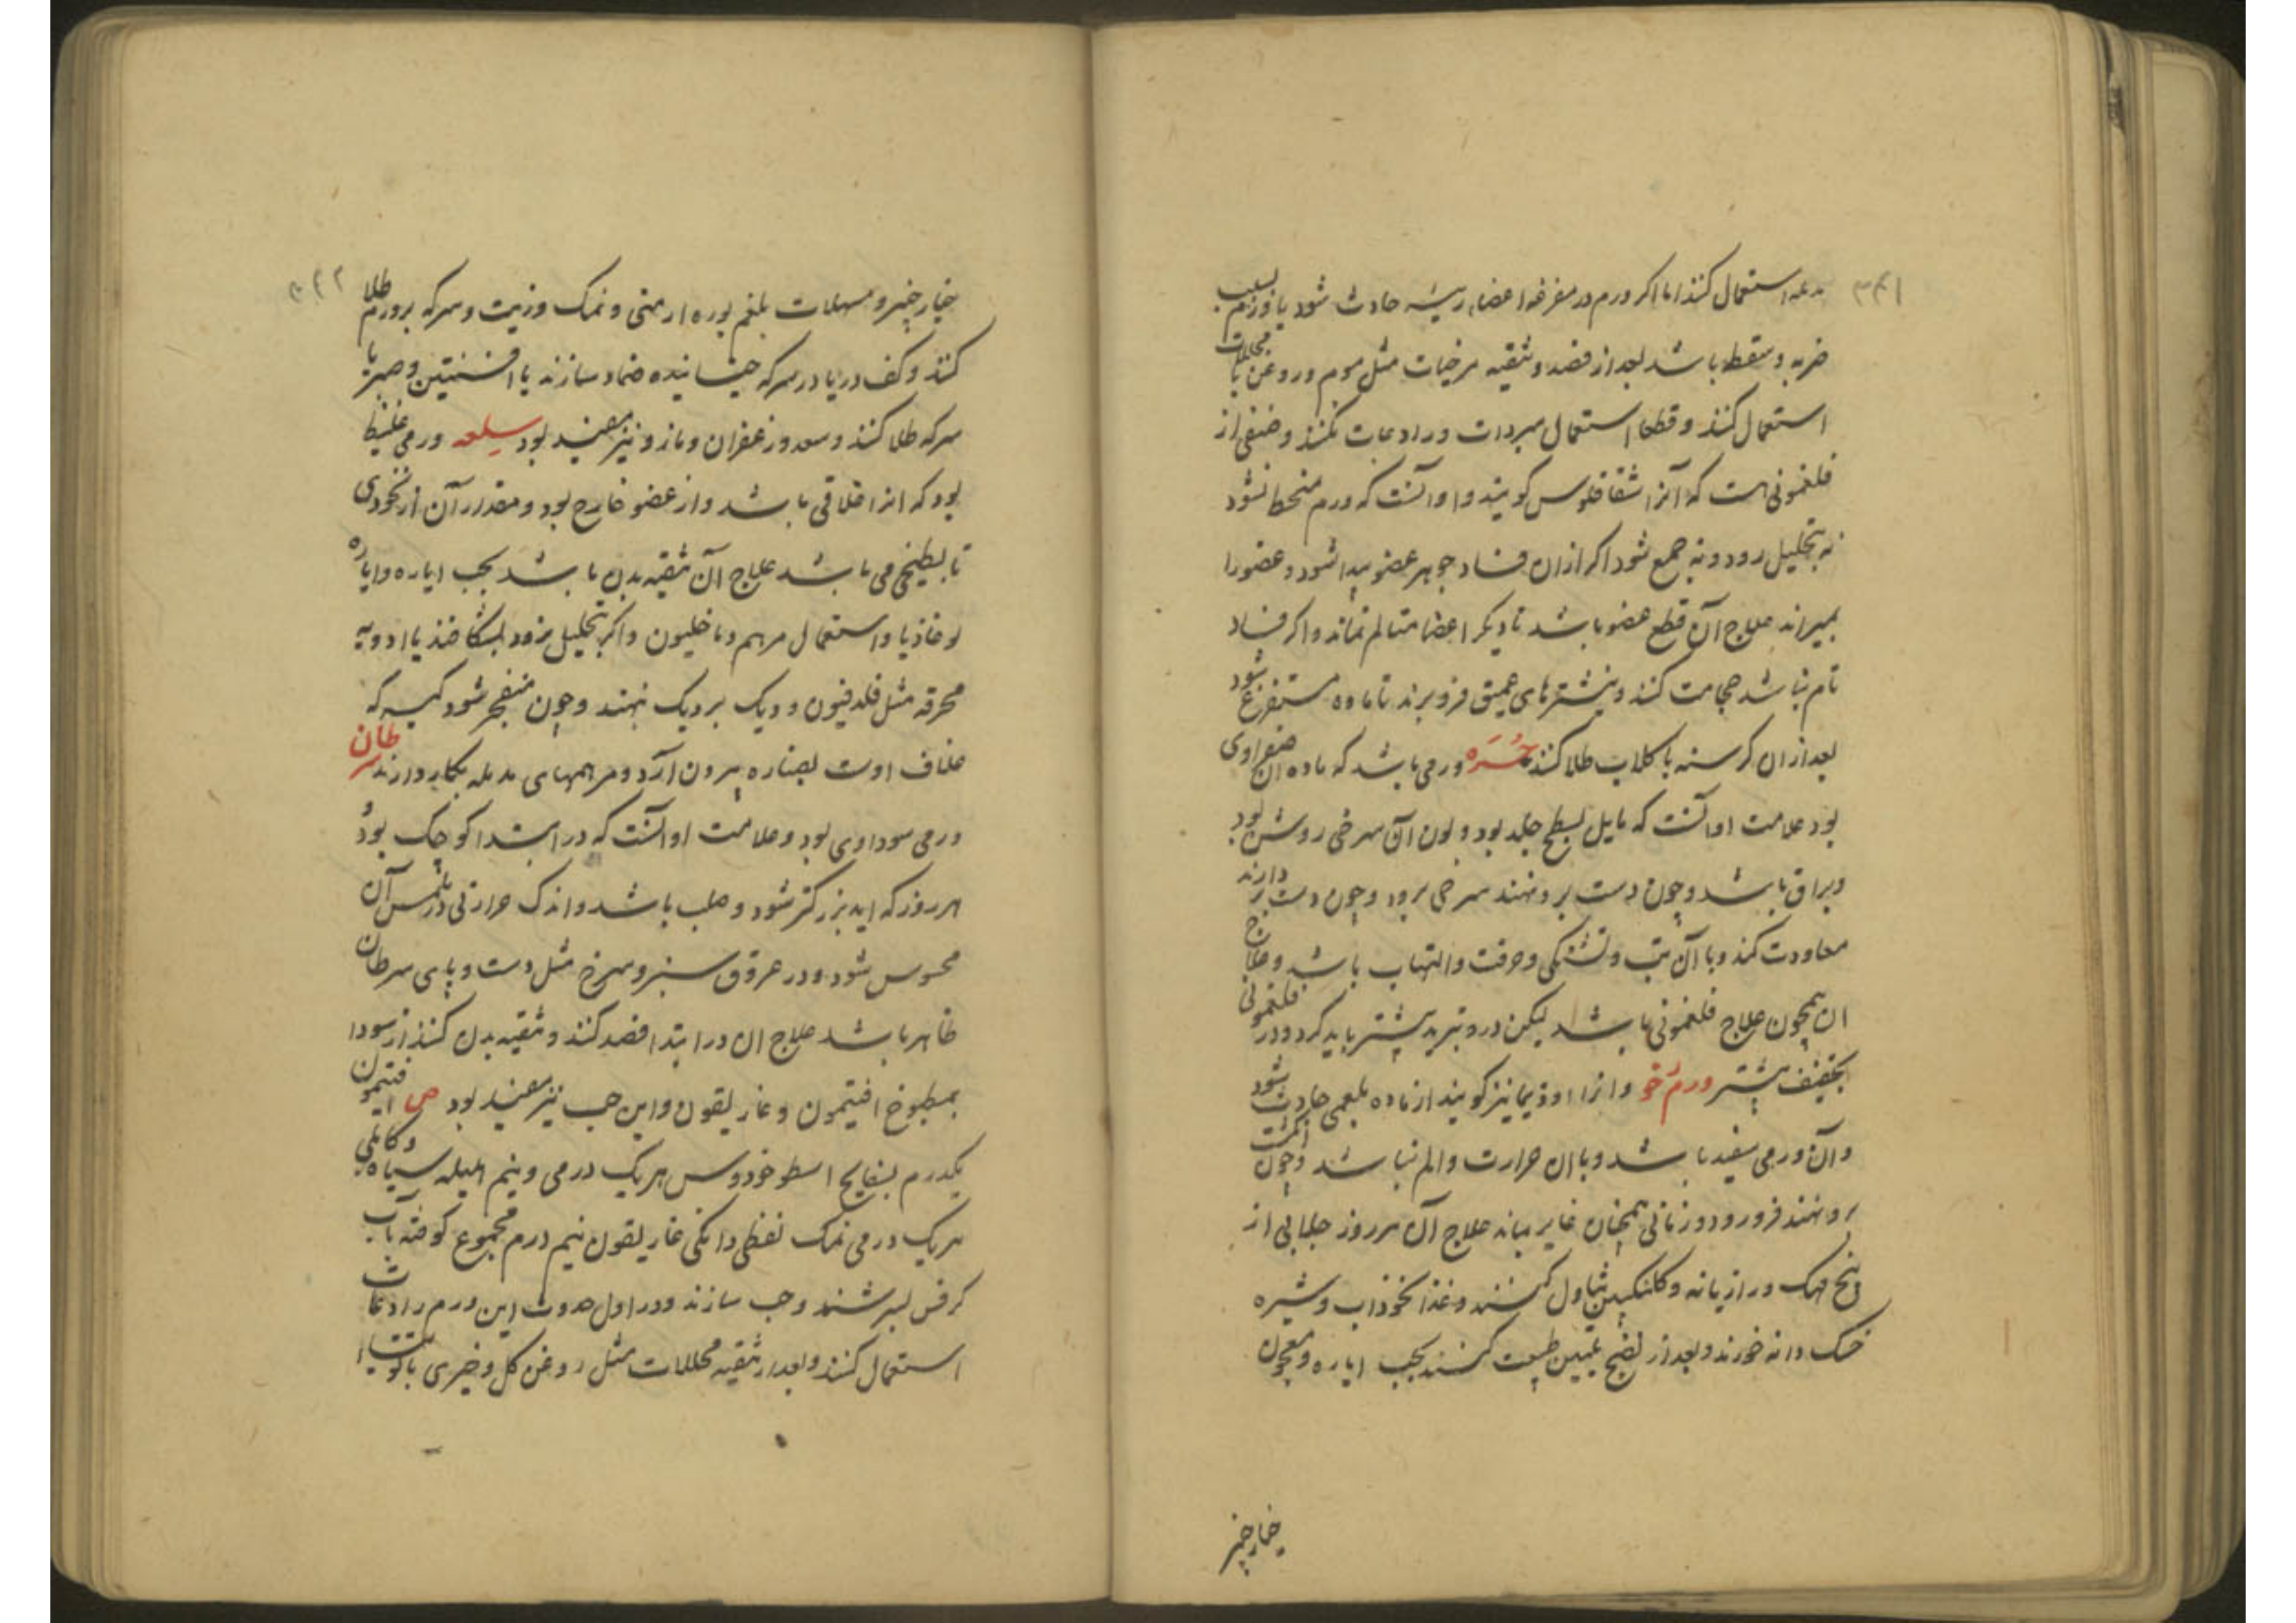 ۳۴۱
استعمال کنند اما اکر ورم در مفرغه اعضاء رئیسه حادث شود یا ورم بسبب
ضربه و سقطه باشد بعد از فصد و تنقیه مرخیات مثل موم و روغن با محللات
استعمال کنند و قطعا استعمال مبردات و رادعات نکنند و صنفی از
فلغمونی است که آنرا شقاقلوس کویند و او آنست که ورم منحط نشود
نه بتحلیل رود و نه جمع شود اکر ازان فساد جوهر عضو پیدا شود و عضو را
بمیراند علاج آن قطع عضو باشد تا دیکر اعضا متالم نماند و اکر فساد
تام نباشد حجامت کنند و نیشترهای عمیق فرو برند تا ماده مستفرغ شود
بعد از ان کرسنه با کلاب طلا کنند حمره ورمی باشد که ماده آن صفراوی
بود علامت او آنست که مایل بسطح جلد بود و لون آن سرخی روشن بود
و براق باشد و چون دست برو نهند سرخی برود و چون دست بردارند
معاودت کند و با آن تب و تشنکی و حرقت و التهاب باشد و علاج
ان همچون علاج فلغمونی باشد لیکن درو تبرید بیشتر باید کرد و در فلغمونی
تجفیف بیشتر ورم رخو و انرا اوذیما نیز کویند از ماده بلغمی حادث شود
و آن ورمی سفید باشد و با ان حرارت و الم نباشد و چون انکشت
برو نهند فرو رود و زمانی همچنان غایر بماند علاج آن هر روز جلابی از
بیخ مهک و رازیانه و کلنکبین تناول کنند و غذا نخوداب و شیره
خسک دانه خورند و بعد از نضج تلیین طبیعت کنند بحب ایاره و معجون
خیارچنبر
۳۴۲
خیارچنبر و مسهلات بلغم بوره ارمنی و نمک و زیت و سرکه بر ورم طلا
کنند و کف دریا در سرکه خیسانیده ضماد سازند یا افسنتین و صبر با
سرکه طلا کنند و سعد و زعفران و مازو نیز مفید بود سلعه ورمی غلیظ
بود که انرا غلافی باشد و از عضو خارج بود و مقدار آن از نخودی
تا بطیخی می باشد علاج آن تنقیه بدن باشد بحب ایاره و ایاره
لوغاذیا و استعمال مرهم دیاخلیون و اکر بتحلیل نرود بشکافند یا ادویه
محرقه مثل فلدفیون و دیک بردیک نهند و چون منفجر شود کیسه که
غلاف اوست بصناره بیرون آرد و مرهمهای مدمله بکار دارند سرطان
ورمی سوداوی بود و علامت او آنست که در ابتدا کوچک بود و
هر روز که اید بزرکتر شود و صلب باشد و اندک حرارتی در لمس آن
محسوس شود و در عروق سبز و سرخ مثل دست و پای سرطان
ظاهر باشد علاج ان در ابتدا فصد کنند و تنقیه بدن کنند از سودا
بمطبوخ افتیمون و غاریقون و این حب نیز مفید بود ص افتیمون
یکدرم بسفایج اسطوخودوس هر یک درمی و نیم هلیله سیاه و کابلی
هر یک درمی نمک نفطی دانکی غاریقون نیم درم مجموع کوفته بآب
کرفس بسرشند و حب سازند و در اول حدوث این ورم رادعات
استعمال کنند و بعد از تنقیه محللات مثل روغن کل و خیری با توتیا